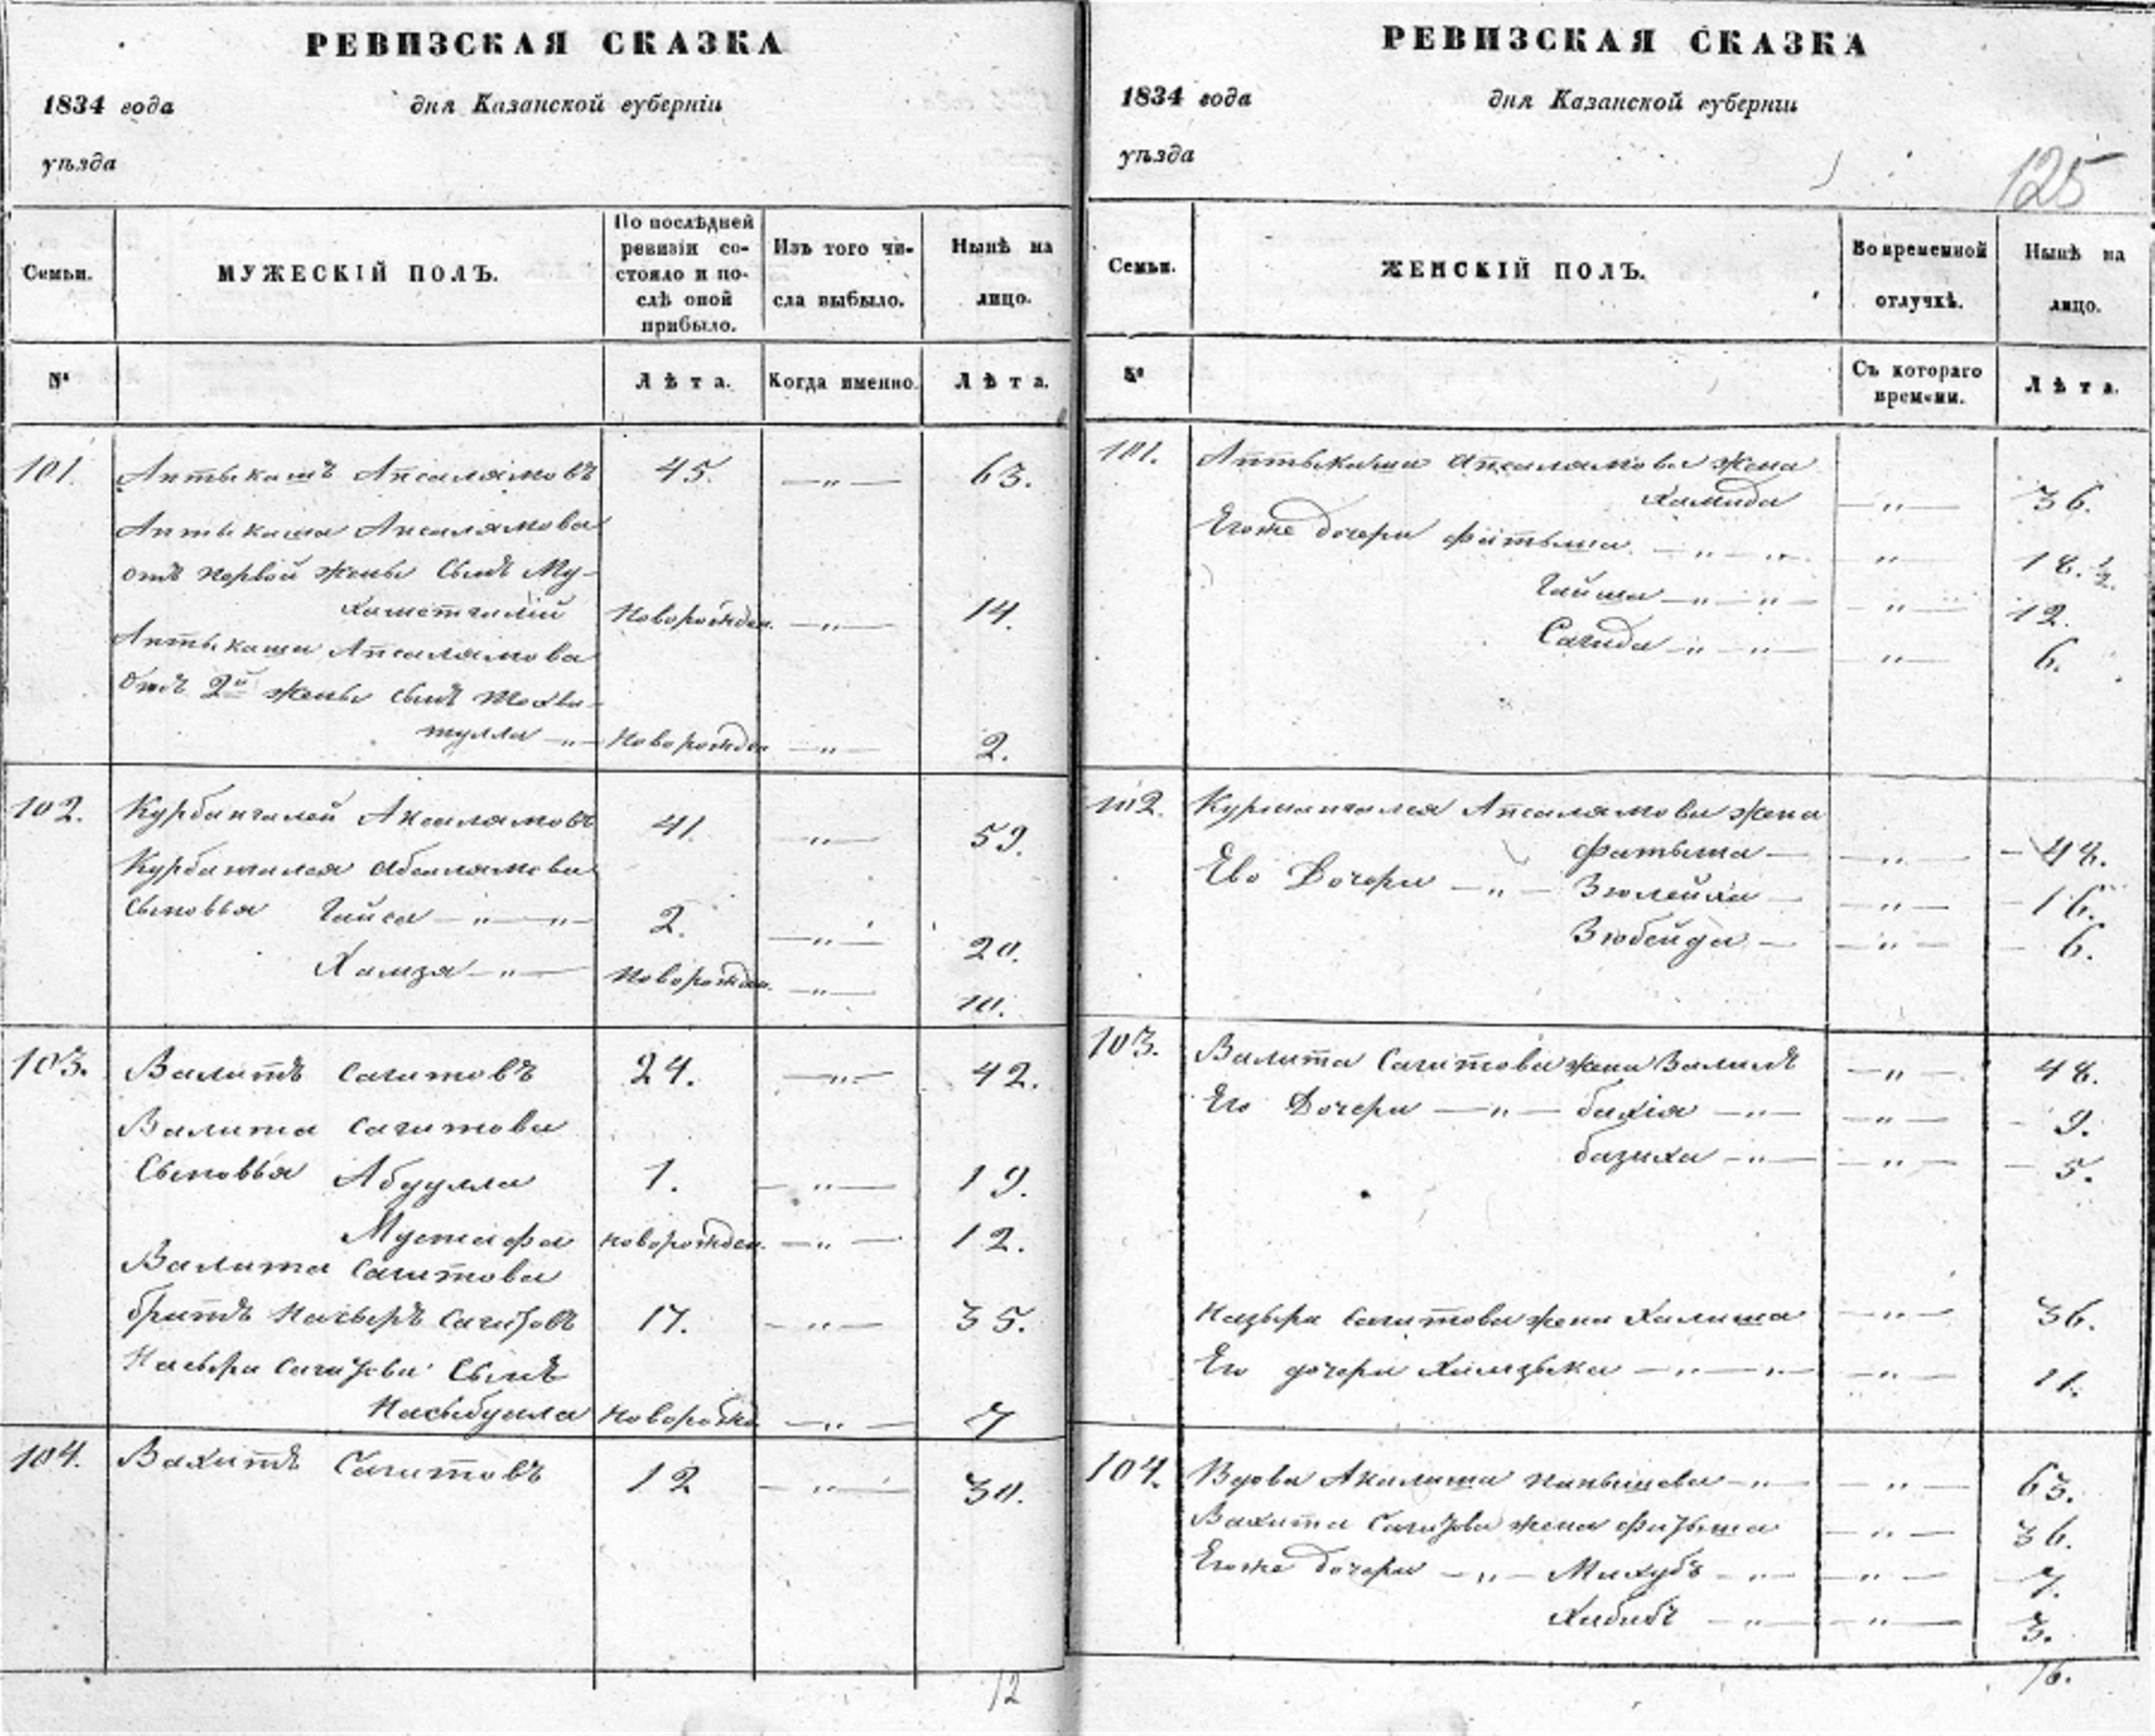 РЕВИЗСКАЯ СКАЗКА
1834 года дня Казанской губерніи
уѣзда
Семьи.
МУЖЕСКІЙ ПОЛЪ.
По послѣдней ревизіи состояло и послѣ оной прибыло.
Изъ того числа выбыло.
Нынѣ на лицо.
№
Лѣта.
Когда именно.
Лѣта.
101. Аптыкашъ Апсалямовъ 45. —„— 63.
Аптыкаша Апсалямова
отъ первой жены сынъ Му-
хаметгалій Новорожден. —„— 14.
Аптыкаша Апсалямова
отъ 2й жены сынъ
тулла —„— Новорожден —„— 2.
102. Курбангалей Апсалямовъ 41. —„— 59.
Курбангалея Абсалямова
сыновья Гайса —„— —„— 2. —„— 20.
Хамза —„— Новорожден. —„— 10.
103. Валитъ Сагитовъ 24. —„— 42.
Валита Сагитова
Сыновья Абдулла 1. —„— 19.
Мустафа новорожден. —„— 12.
Валита Сагитова
братъ Насыръ Сагитовъ 17. —„— 35.
Насыра Сагитова Сынъ
Насыбулла новорожд —„— 7
104. Вахитъ Сагитовъ 12 —„— 30.
12
РЕВИЗСКАЯ СКАЗКА
1834 года дня Казанской губерніи
уѣзда
125
Семьи.
ЖЕНСКІЙ ПОЛЪ.
Во временной отлучкѣ.
Нынѣ на лицо.
№
Съ котораго времени.
Лѣта.
101. Аптыкаша Апсалямова жена
Хамида —„— 36.
Егоже дочери Фатыма —„— —„— „— 18.½
Гайша —„— „— —„— 12.
Сагида —„— „— „— 6.
102. Курмангалея Апсалямова жена
Фатыма — —„— 48.
Ево Дочери —„— Зюлейха — —„— 16.
Зюбейда — —„— 6.
103. Валита Сагитова жена —„— 48.
Его Дочери —„— бахія —„— —„— 9.
базиха —„— —„— 5.
Насыра Сагитова жена Халиша —„— 36.
Его дочери —„— „— —„— 11.
104. Вдова —„— —„— 63.
Вахита Сагитова жена Фатыма —„— 36.
Егоже дочери —„— Махубъ —„— —„— 7.
Хабибъ —„— „— 3.
16.